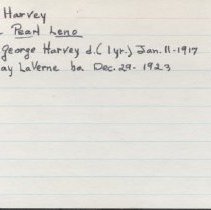 Harvey
Pearl Leno
George Harvey d. (1 yr.) Jan. 11 - 1917
ay LaVerne ba. Dec. 29 - 1923